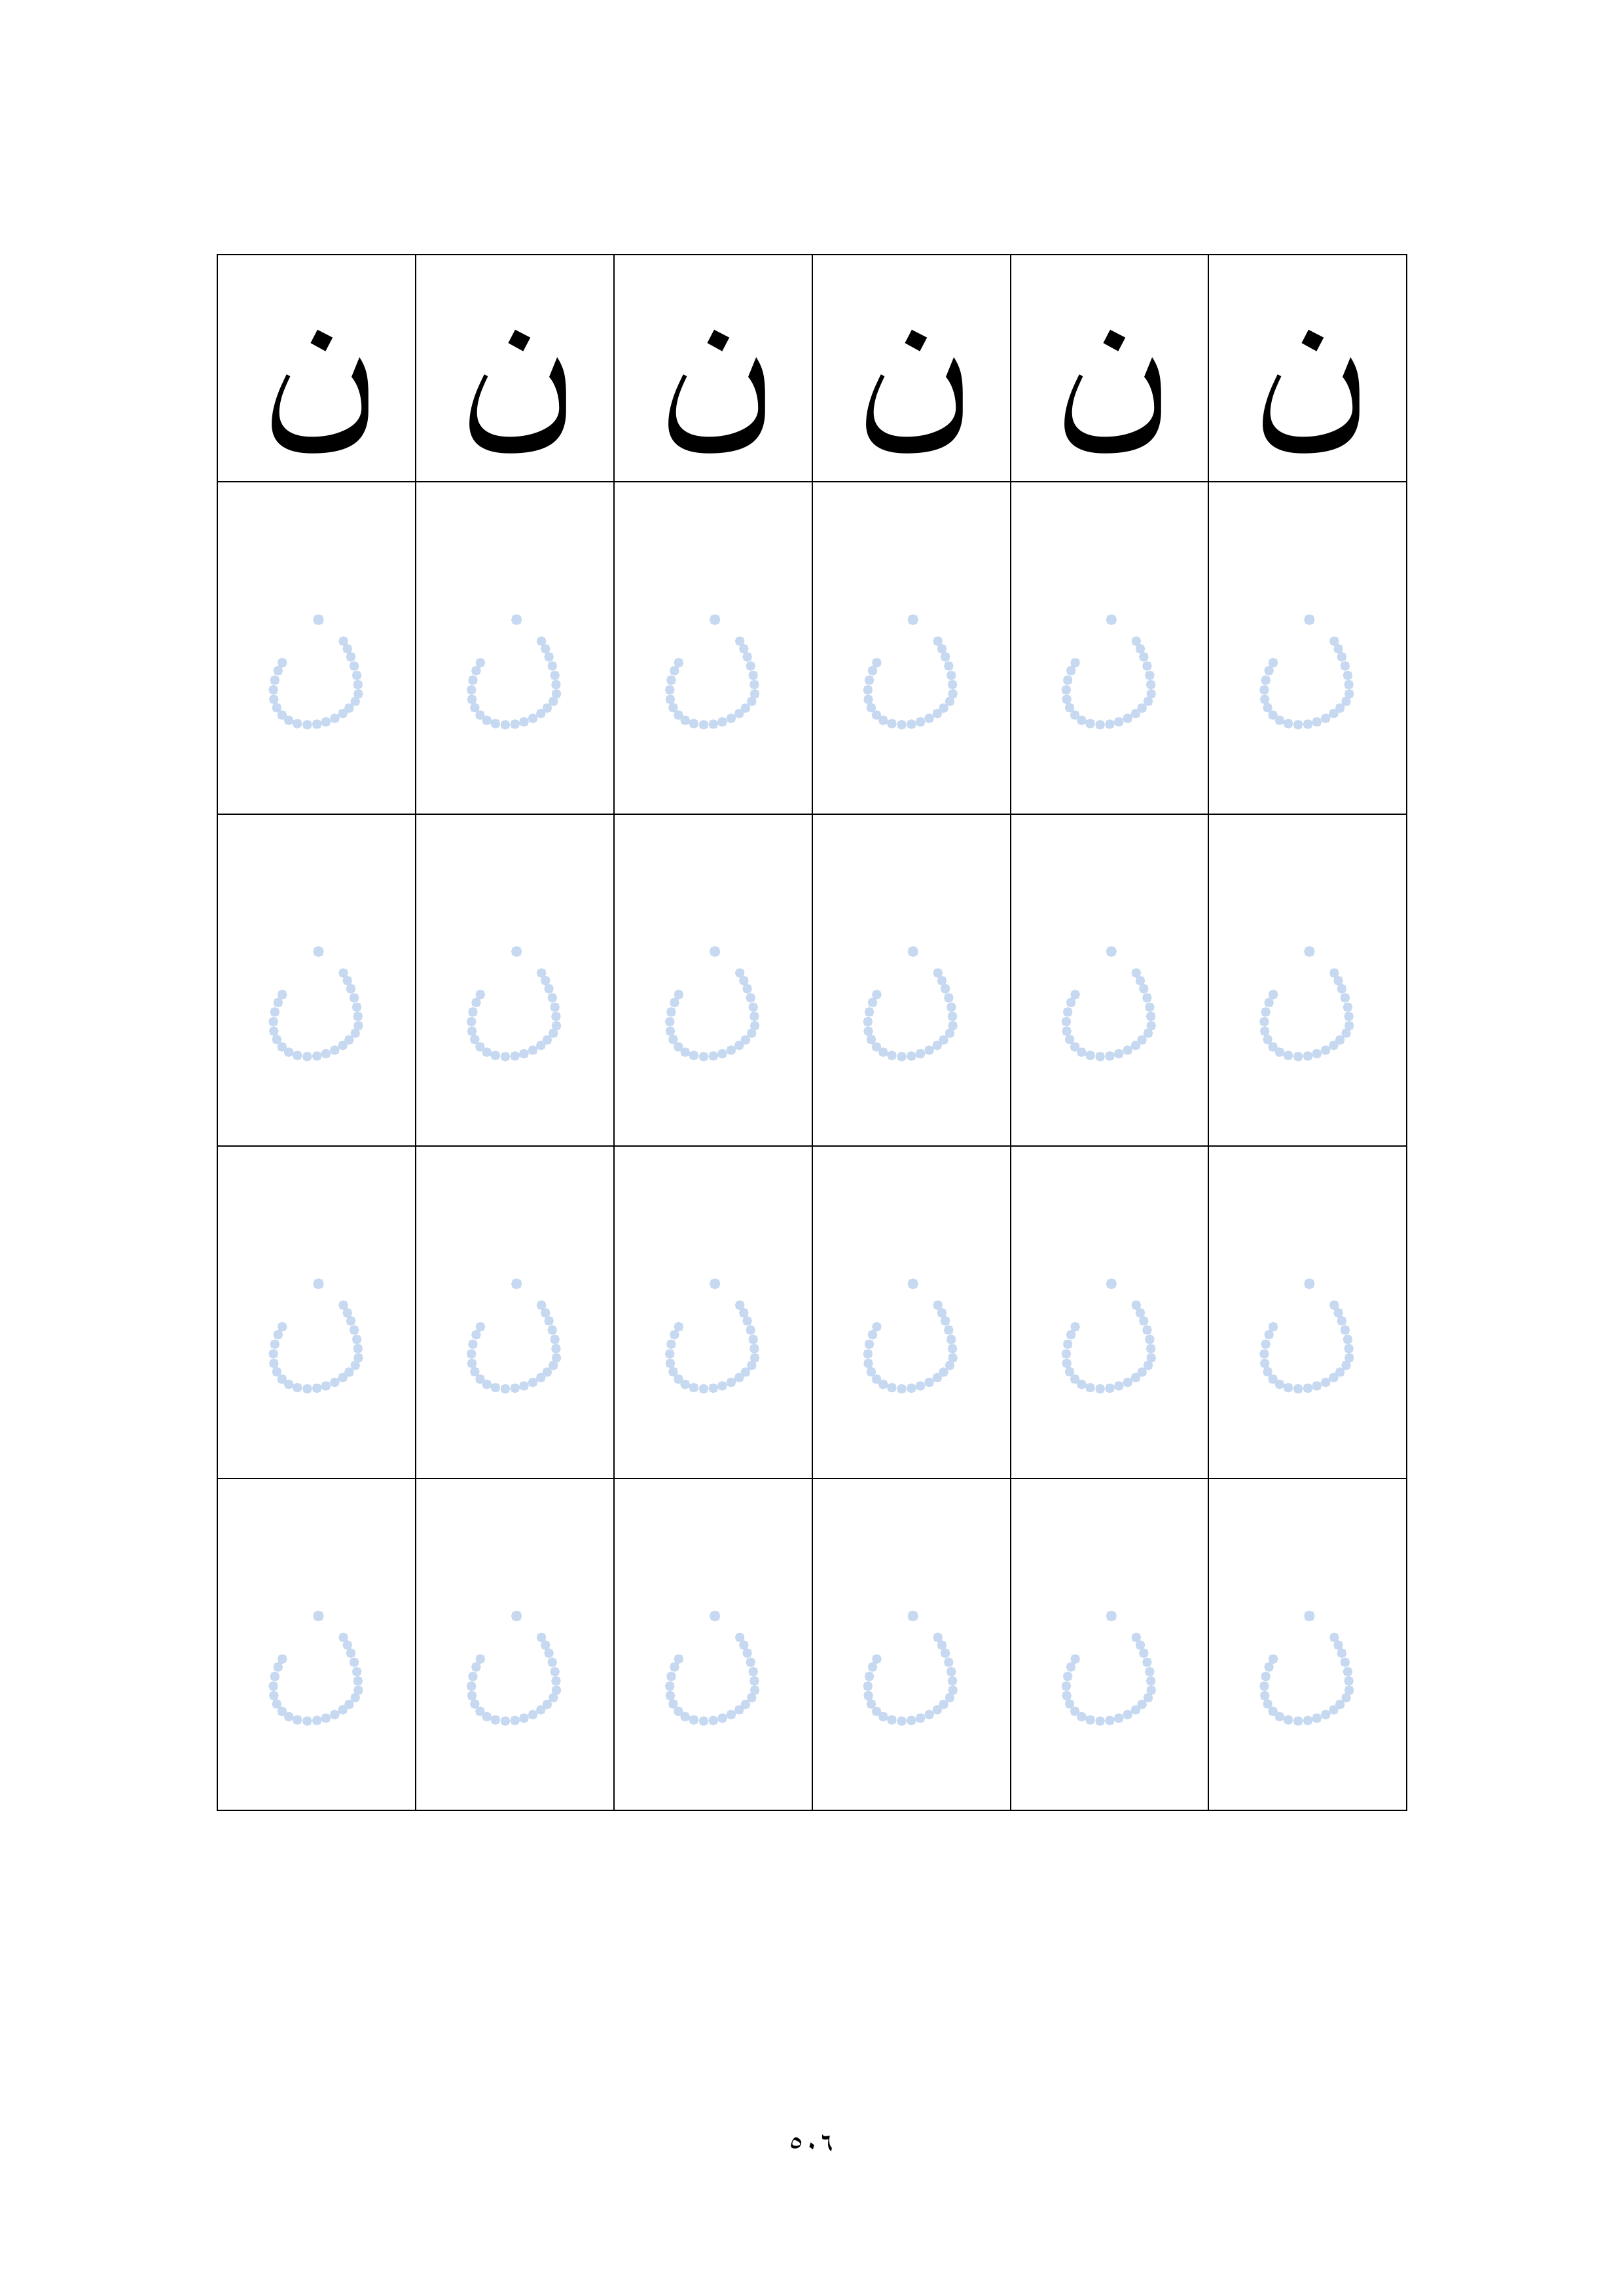 ن ن ن ن ن ن
ن ن ن ن ن ن
ن ن ن ن ن ن
ن ن ن ن ن ن
ن ن ن ن ن ن
٥٠٦